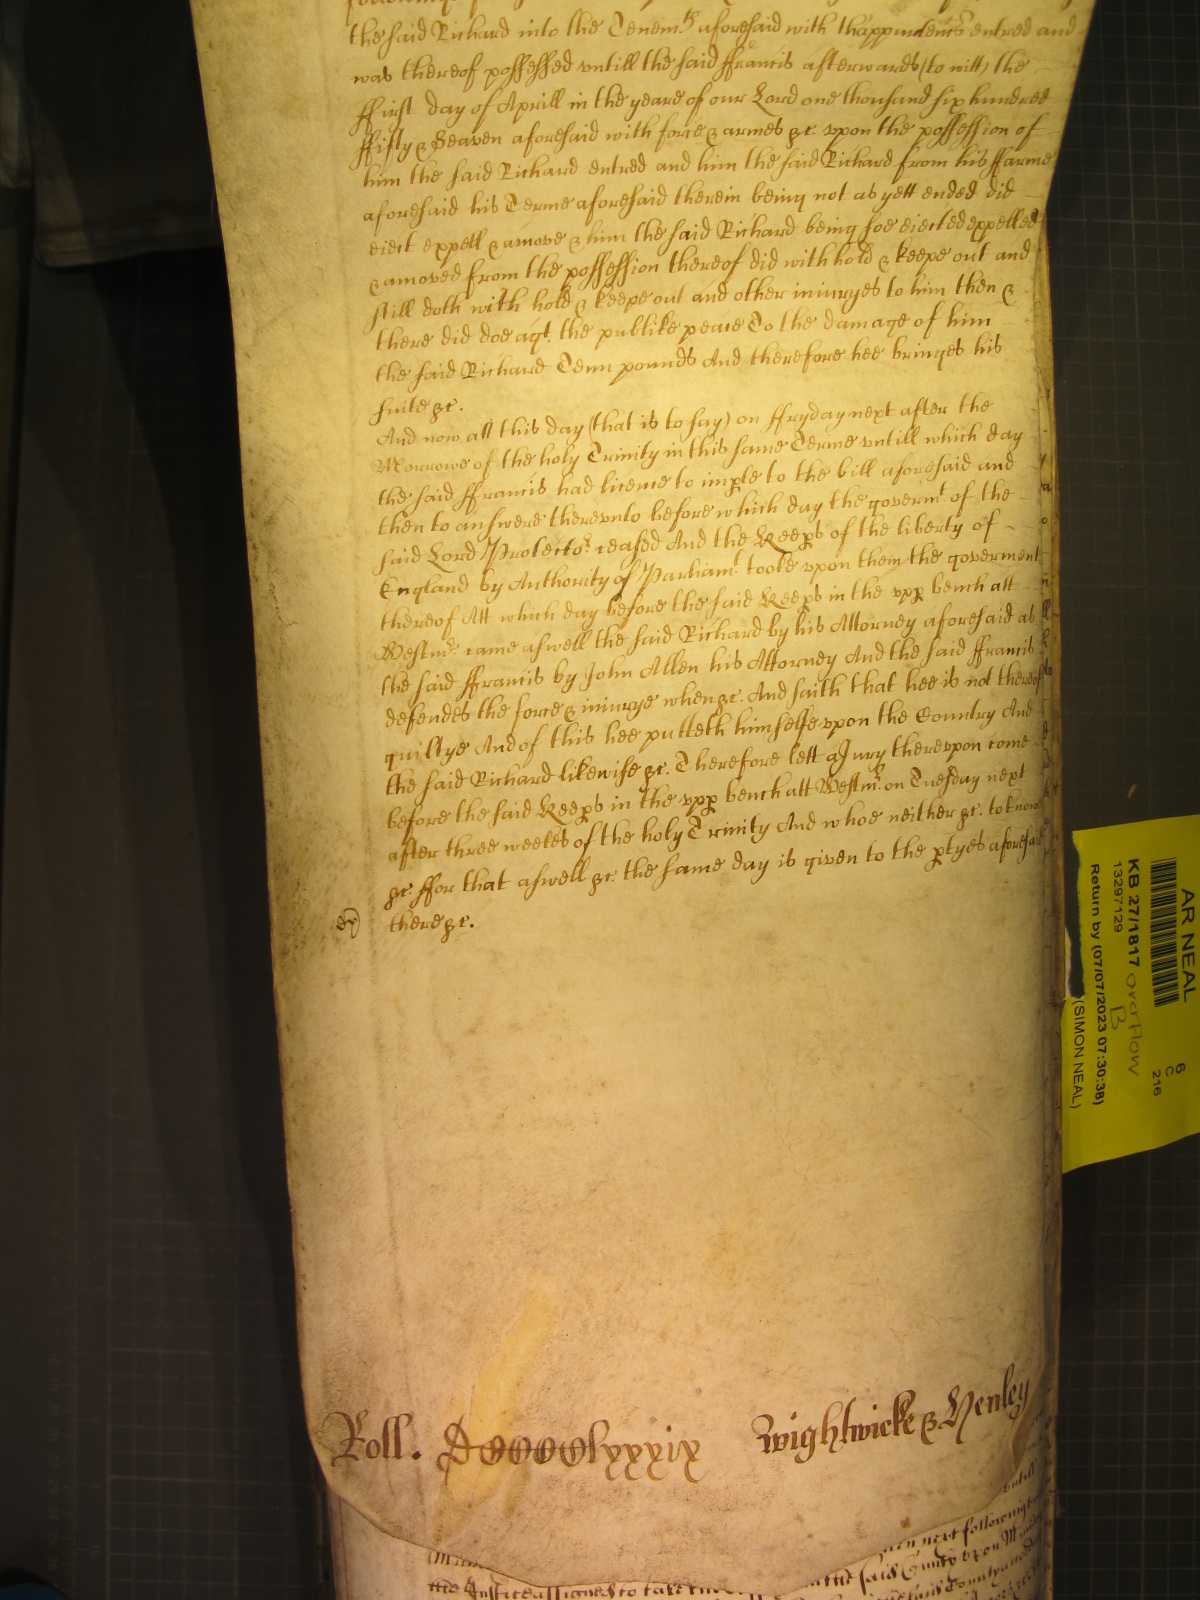 the said Richard into the Tenem.ts aforesaid with thappurtenn̄cs entred and
was thereof possessed untill the said ffrancis afterwards (to witt) the
ffirst day of Aprill in the yeare of our Lord one thousand six hundred
ffifty & Seaven aforesaid with force & armes &c. upon the possession of
him the said Richard entred and him the said Richard from his ffarme
aforesaid his Terme aforesaid therein being not as yett ended did
eiect expell & amove & him the said Richard being soe eiected expelled
& amoved from the possession thereof did with hold & keepe out and
still doth with hold & keepe out and other iniuryes to him then &
there did doe agt. the publike peace To the damage of him
the said Richard Tenn pounds And therefore hee bringes his
suite &c.
And now att this day (that is to say) on ffryday next after the
Morrowe of the holy Trinity in this same Terme untill which day
the said ffrancis had licence to imple to the bill aforesaid and
then to answere thereunto before which day the governmt. of the
said Lord Protector ceased And the Keeps of the liberty of
England by Authority of Parliamt. tooke upon them the goverment
thereof Att which day before the said Keeps in the upp bench att
Westmr. came aswell the said Richard by his Attorney aforesaid as
the said ffrancis by John Allen his Attorney And the said ffrancis
defendes the force & iniurye when &c. And saith that hee is not thereof
guiltye And of this hee putteth himselfe upon the Country And
the said Richard likewise &c. Therefore lett a Jury thereupon come
before the said Keeps in the upp bench att Westmr. on Tuesday next
after three weekes of the holy Trinity And whoe neither &c. to know
&c. ffor that aswell &c. the same day is given to the ptyes aforesaid
there &c.
Roll. DCCCClxxxix
Wightwicke & Henley
next following
the said County
the Justices assigned to take the
AR NEAL
KB 27/1817 overflow
B
13297129
Return by (07/07/2023 07:30:38)
(SIMON NEAL)
6
C
216